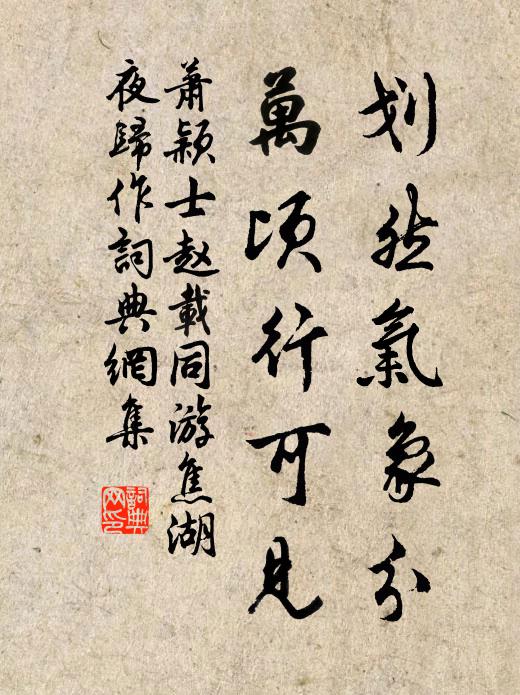 划然氣象分
萬頃行可見
萧穎士赵載同游焦湖
夜歸作詞典網集
詞典网印